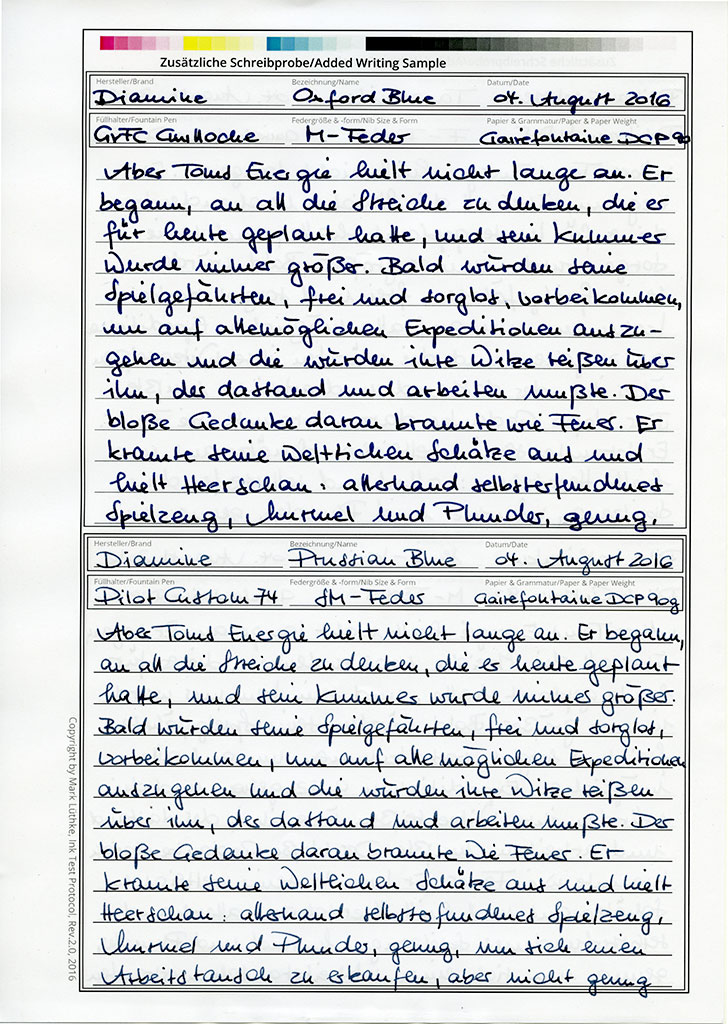 Zusätzliche Schreibprobe/Added Writing Sample
Hersteller/Brand Bezeichnung/Name Datum/Date
Diamine Oxford Blue 04. August 2016
Füllhalter/Fountain Pen Federgröße & -form/Nib Size & Form Papier & Grammatur/Paper & Paper Weight
GvFC Guilloche M-Feder Clairefontaine DCP 90
Aber Toms Energie hielt nicht lange an. Er
begann, an all die Streiche zu denken, die er
für heute geplant hatte, und sein Kummer
wurde immer größer. Bald würden seine
Spielgefährten, frei und sorglos, vorbeikommen,
um auf allemöglichen Expeditionen auszu-
gehen und die würden ihre Witze reißen über
ihn, der dastand und arbeiten mußte. Der
bloße Gedanke daran brannte wie Feuer. Er
kramte seine weltlichen Schätze aus und
hielt Heerschau: allerhand selbsterfundenes
Spielzeug, Murmel und Plunder, genug,
Hersteller/Brand Bezeichnung/Name Datum/Date
Diamine Prussian Blue 04. August 2016
Füllhalter/Fountain Pen Federgröße & -form/Nib Size & Form Papier & Grammatur/Paper & Paper Weight
Pilot Custom 74 SM-Feder Clairefontaine DCP 90g
Aber Toms Energie hielt nicht lange an. Er begann,
an all die Streiche zu denken, die er heute geplant
hatte, und sein Kummer wurde immer größer.
Bald würden seine Spielgefährten, frei und sorglos,
vorbeikommen, um auf alle möglichen Expeditionen
auszugehen und die würden ihre Witze reißen
über ihn, der dastand und arbeiten mußte. Der
bloße Gedanke daran brannte wie Feuer. Er
kramte seine weltlichen Schätze aus und hielt
Heerschau: allerhand selbsterfundenes Spielzeug,
Murmel und Plunder, genug, um sich einen
Arbeitstausch zu erkaufen, aber nicht genug
Copyright by Mark Lüthke, Ink Test Protocol, Rev.2.0, 2016